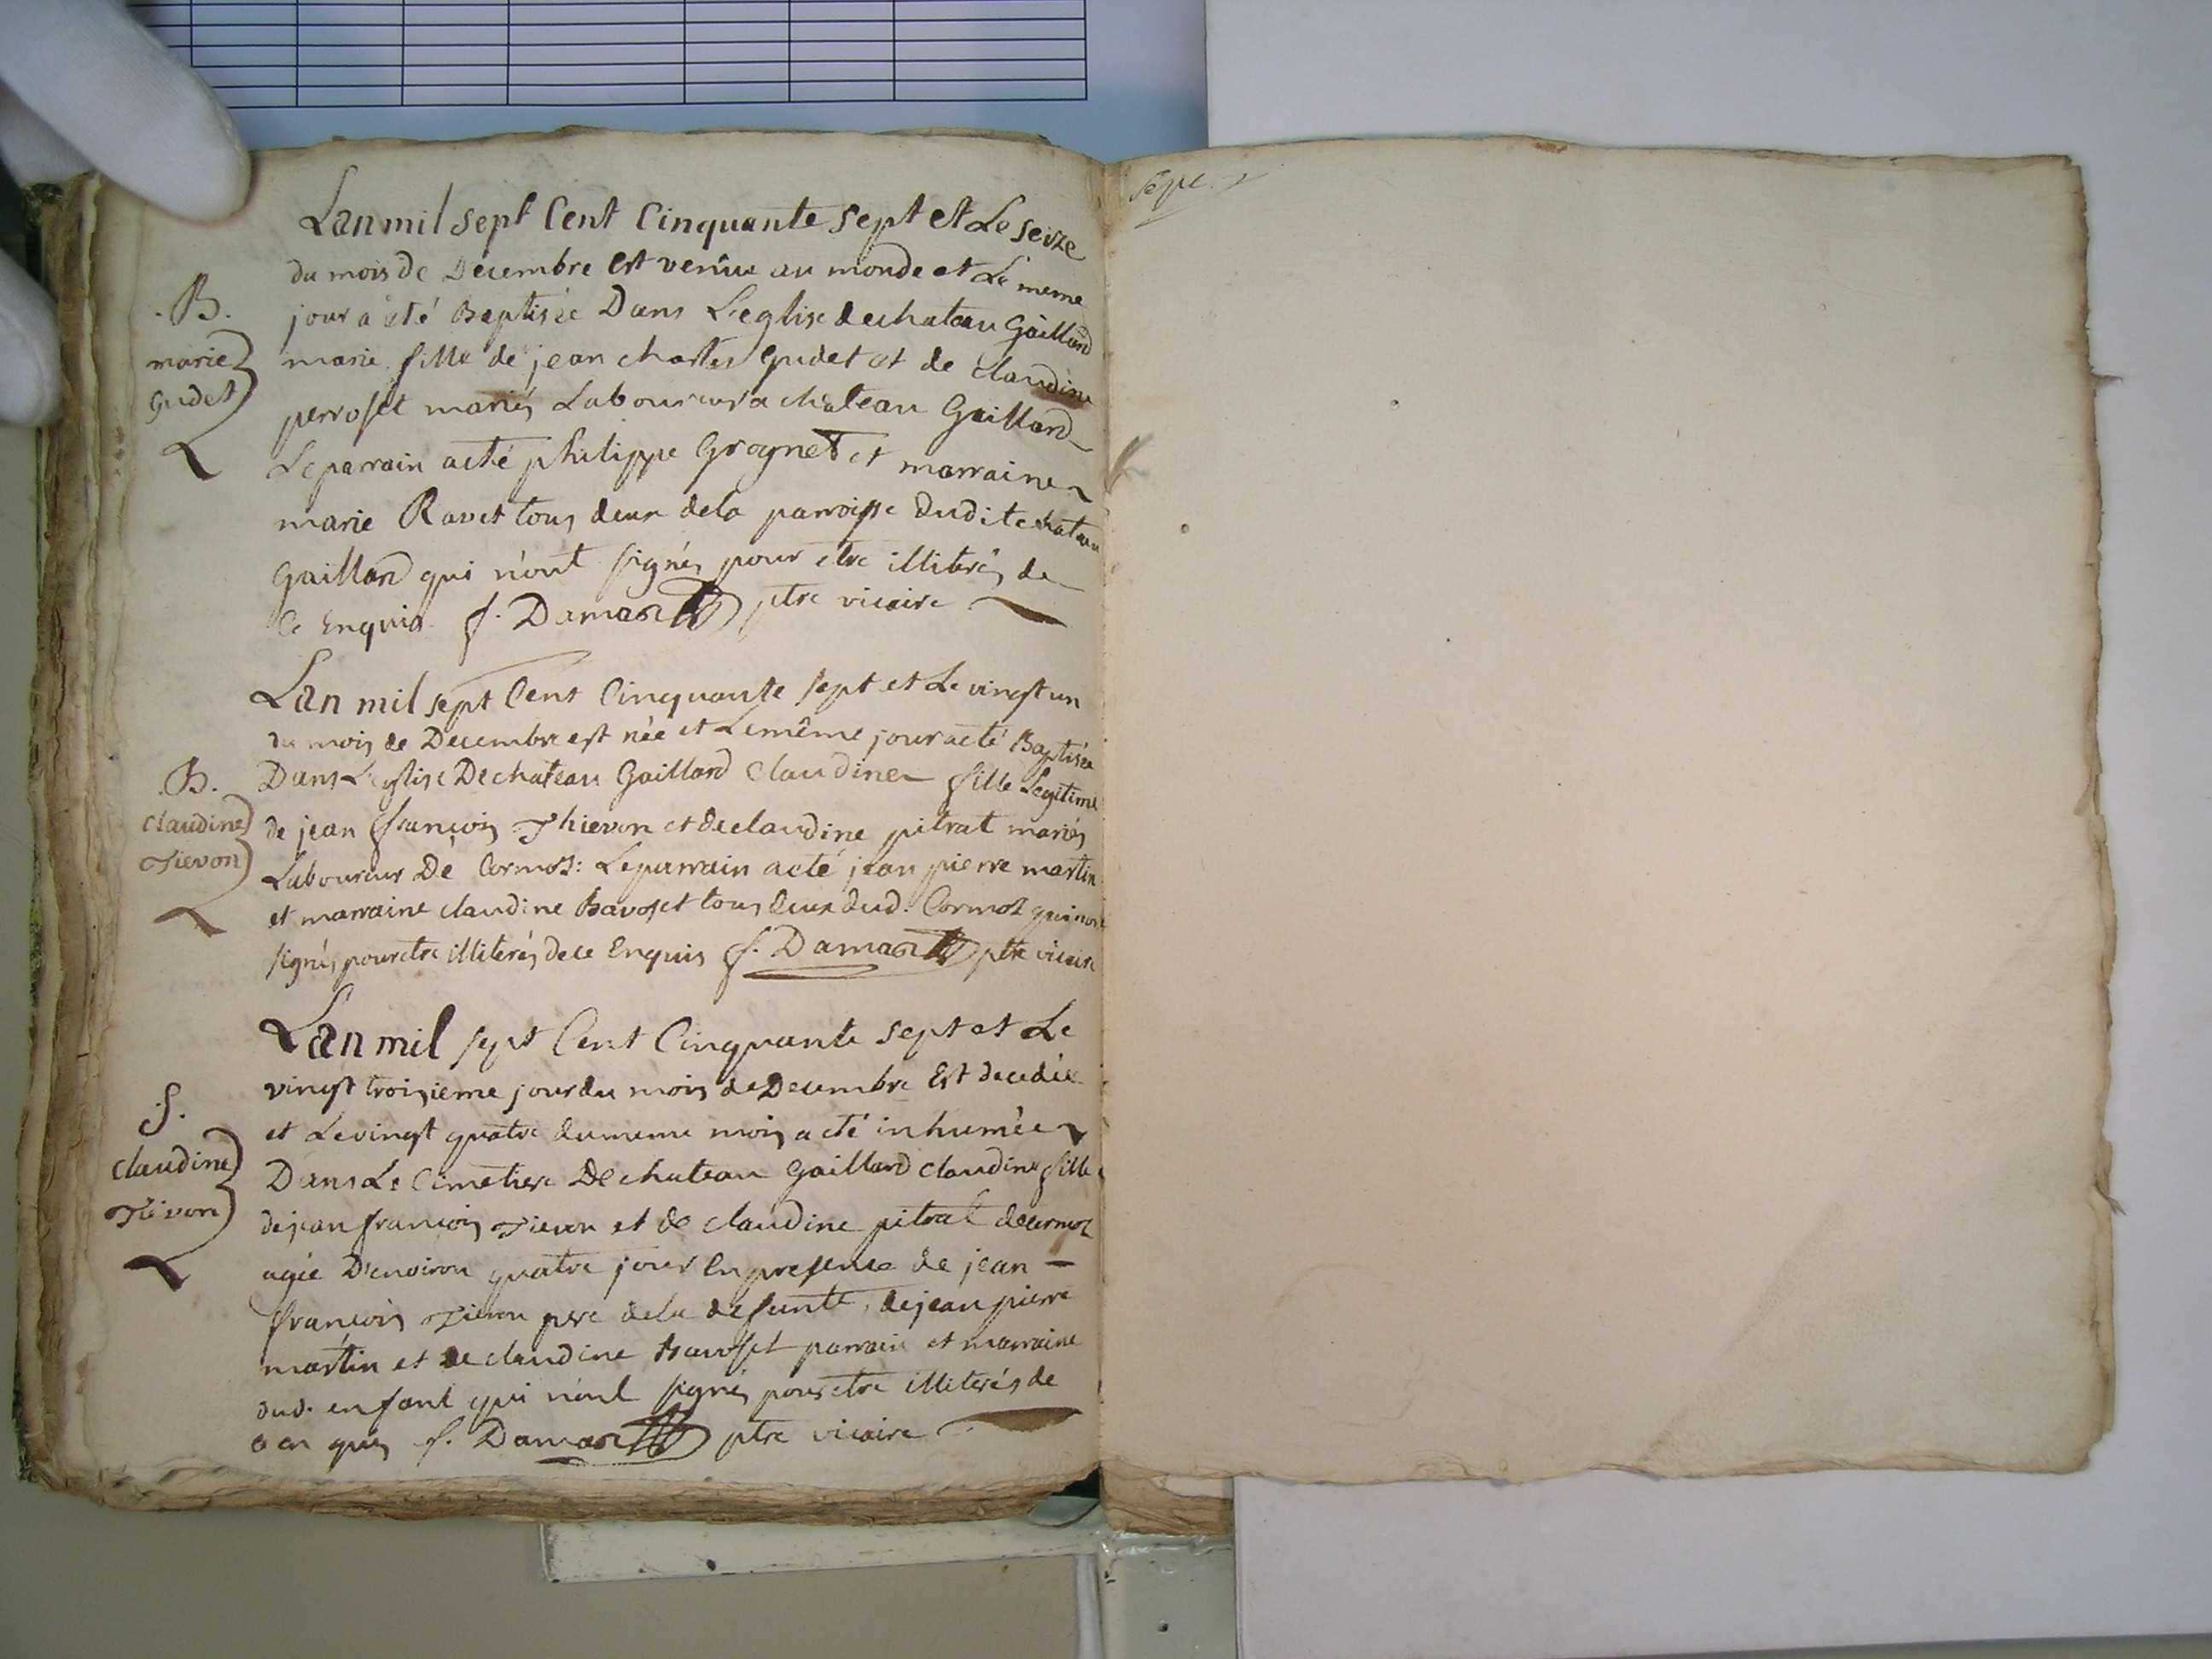 Lan mil sept Cent Cinquante sept et Le seize
du mois de Decembre est venüe au monde et Le meme
jour a été Baptisée Dans L'eglise de chateau Gaillard
.B.
marie
Gudet
marie fille de jean charles Gudet et de claudine
perroset mariés Laboureurs a chateau Gaillard
Le parrain a eté philippe Grognet et marraine
marie Ravet tous deux de la parroisse dudit chateau
Gaillard qui n'ont signés pour etre illiterés de
Ce Enquis f. Damas ptre vicaire
Lan mil sept Cent Cinquante sept et Le vingt un
du mois de Decembre est née et Le même jour a eté Baptisée
.B.
claudine
Tievon
Dans L'eglise De chateau Gaillard claudine fille Legitime
de jean françois Thievon et de claudine pitrat mariés
Laboureur De Cormoz: Le parrain a eté jean pierre martin
et marraine claudine Bavoset tous deux dud. Cormoz qui n'ont
signés pour etre illiterés de ce Enquis f. Damas ptre vicaire
Lan mil sept Cent Cinquante sept et Le
vingt troisieme jour du mois de Decembre Est decedée
et Le vingt quatre du meme mois a eté inhumée
.S.
claudine
Tievon
Dans Le Cimetiere De chateau Gaillard claudine fille
de jean françois Tievon et de claudine pitrat de cormoz
agée D'environ quatre jour En presence de jean
françois Tievon pere de la defunte, de jean pierre
martin et de claudine Bavoset parrain et marraine
dud. enfant qui n'ont signés pour etre illiterés de
ce en quis f. Damas ptre vicaire